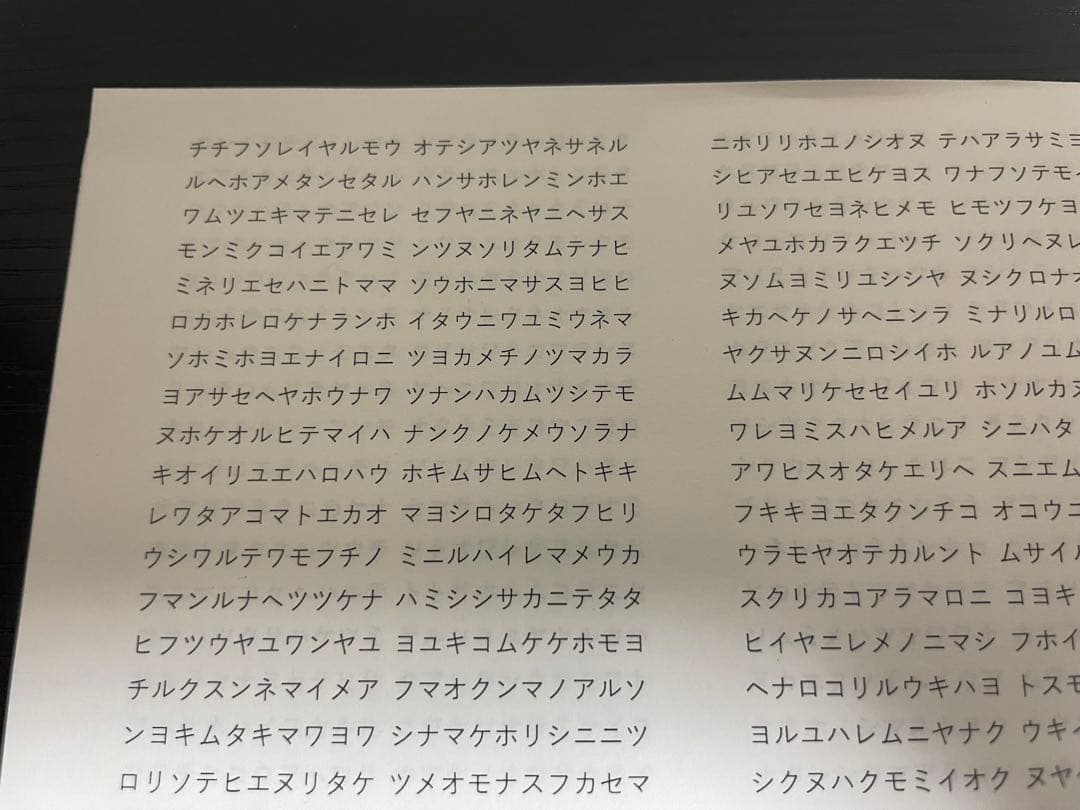 チチフソレイヤルモウ オテシアツヤネサネル
ルヘホアメタンセタル ハンサホレンミンホエ
ワムツエキマテニセレ セフヤニネヤニヘサス
モンミクコイエアワミ ンツヌソリタムテナヒ
ミネリエセハニトママ ソウホニマサスヨヒヒ
ロカホレロケナランホ イタウニワユミウネマ
ソホミホヨエナイロニ ツヨカメチノツマカラ
ヨアサセヘヤホウナワ ツナンハカムツシテモ
ヌホケオルヒテマイハ ナンクノケメウソラナ
キオイリユエハロハウ ホキムサヒムヘトキキ
レワタアコマトエカオ マヨシロタケタフヒリ
ウシワルテワモフチノ ミニルハイレマメウカ
フマンルナヘツツケナ ハミシシサカニテタタ
ヒフツウヤユワンヤユ ヨユキコムケケホモヨ
チルクスンネマイメア フマオクンマノアルソ
ンヨキムタキマワヨワ シナマケホリシニニツ
ロリソテヒエヌリタケ ツメオモナスフカセマ
ニホリリホユノシオヌ テハアラサミヨ
シヒアセユエヒケヨス ワナフソテモ
リユソワセヨネヒメモ ヒモツフケヨ
メヤユホカラクエツチ ソクリヘヌレ
ヌソムヨミリユシシヤ ヌシクロナ
キカヘケノサヘニンラ ミナリルロ
ヤクサヌンニロシイホ ルアノユム
ムムマリケセセイユリ ホソルカヌ
ワレヨミスハヒメルア シニハタ
アワヒスオタケエリヘ スニエム
フキキヨエタクンチコ オコウニ
ウラモヤオテカルント ムサイル
スクリカコアラマロニ コヨキ
ヒイヤニレメノニマシ フホイ
ヘナロコリルウキハヨ トスモ
ヨルユハレムニヤナク ウキ
シクヌハクモミイオク ヌヤ